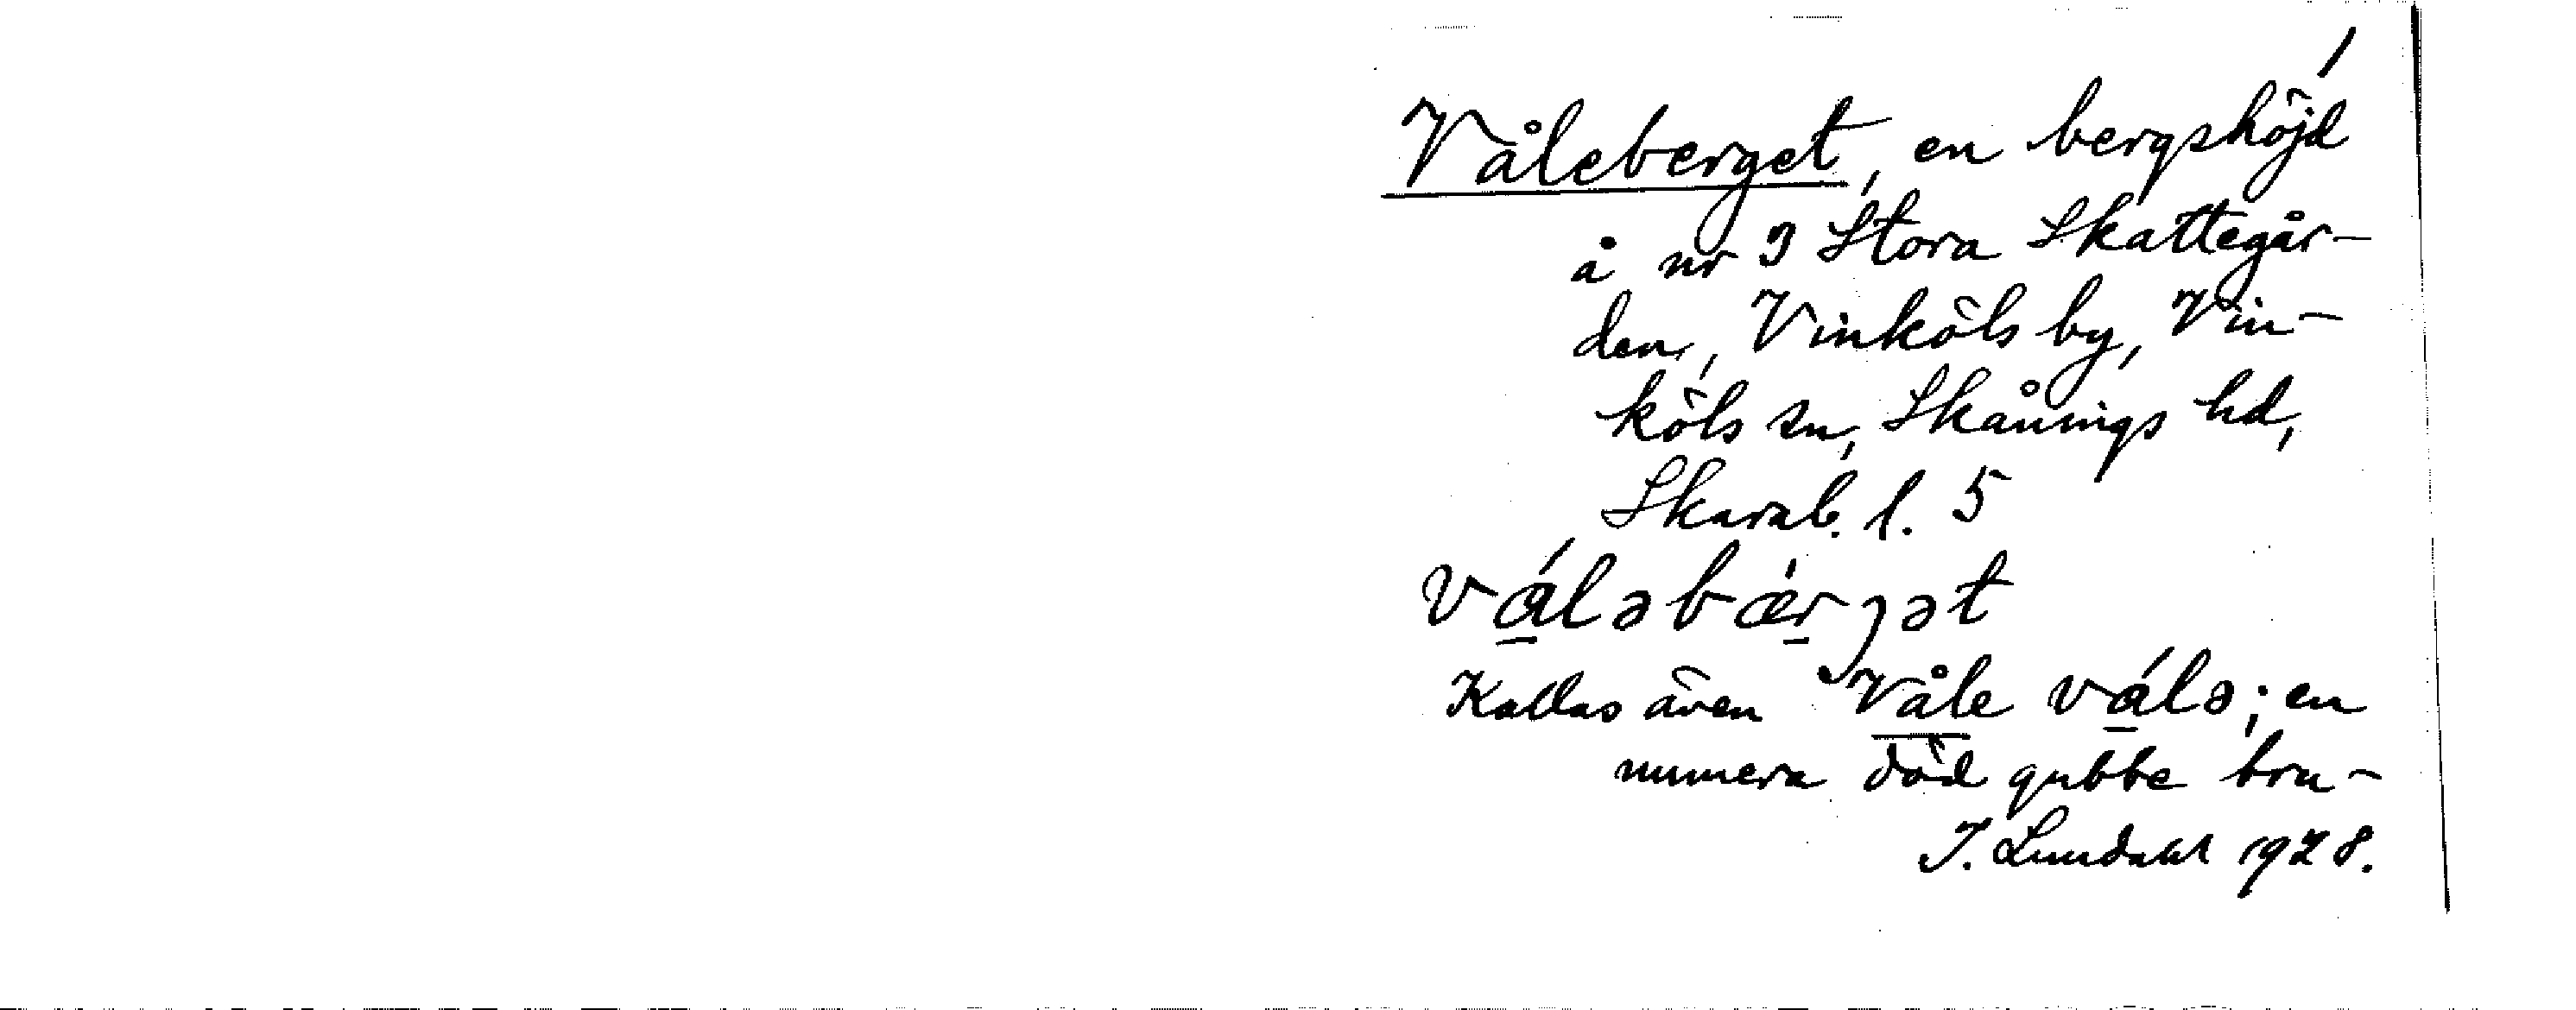 1
Våleberget, en bergshöjd
å nr 3 Stora Skattegår-
den, Vinköls by, Vin-
köls sn, Skånings hd,
Skarab. l. 5
vålǝbærgǝt
Kallas även Våle vålǝ; en
numera död gubbe bru-
J. Lundahl 1928.